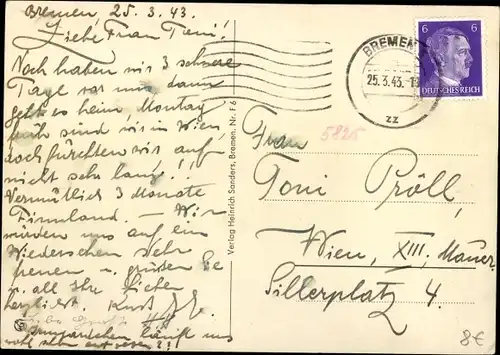 Bremen, 25.3.43.
Liebe Frau Toni!
Noch haben wir 3 schöne
Tage vor uns dann
geht es heim Montag
früh sind wir in Wien
doch fürchten wir auf
nicht sehr lange!!
Vermutlich 3 Monate
Finnland. – Wir
würden uns auf ein
Wiedersehen sehr
freuen u. grüßen Sie
u. all Ihre Lieben
herzlichst. Kurt
Verlag Heinrich Sanders, Bremen. Nr. F 6
BREMEN
25.3.43.
zz
6 6
DEUTSCHES REICH
5825
Frau
Toni Pröll,
Wien, XIII, Mauer
Sillerplatz 4.
8€